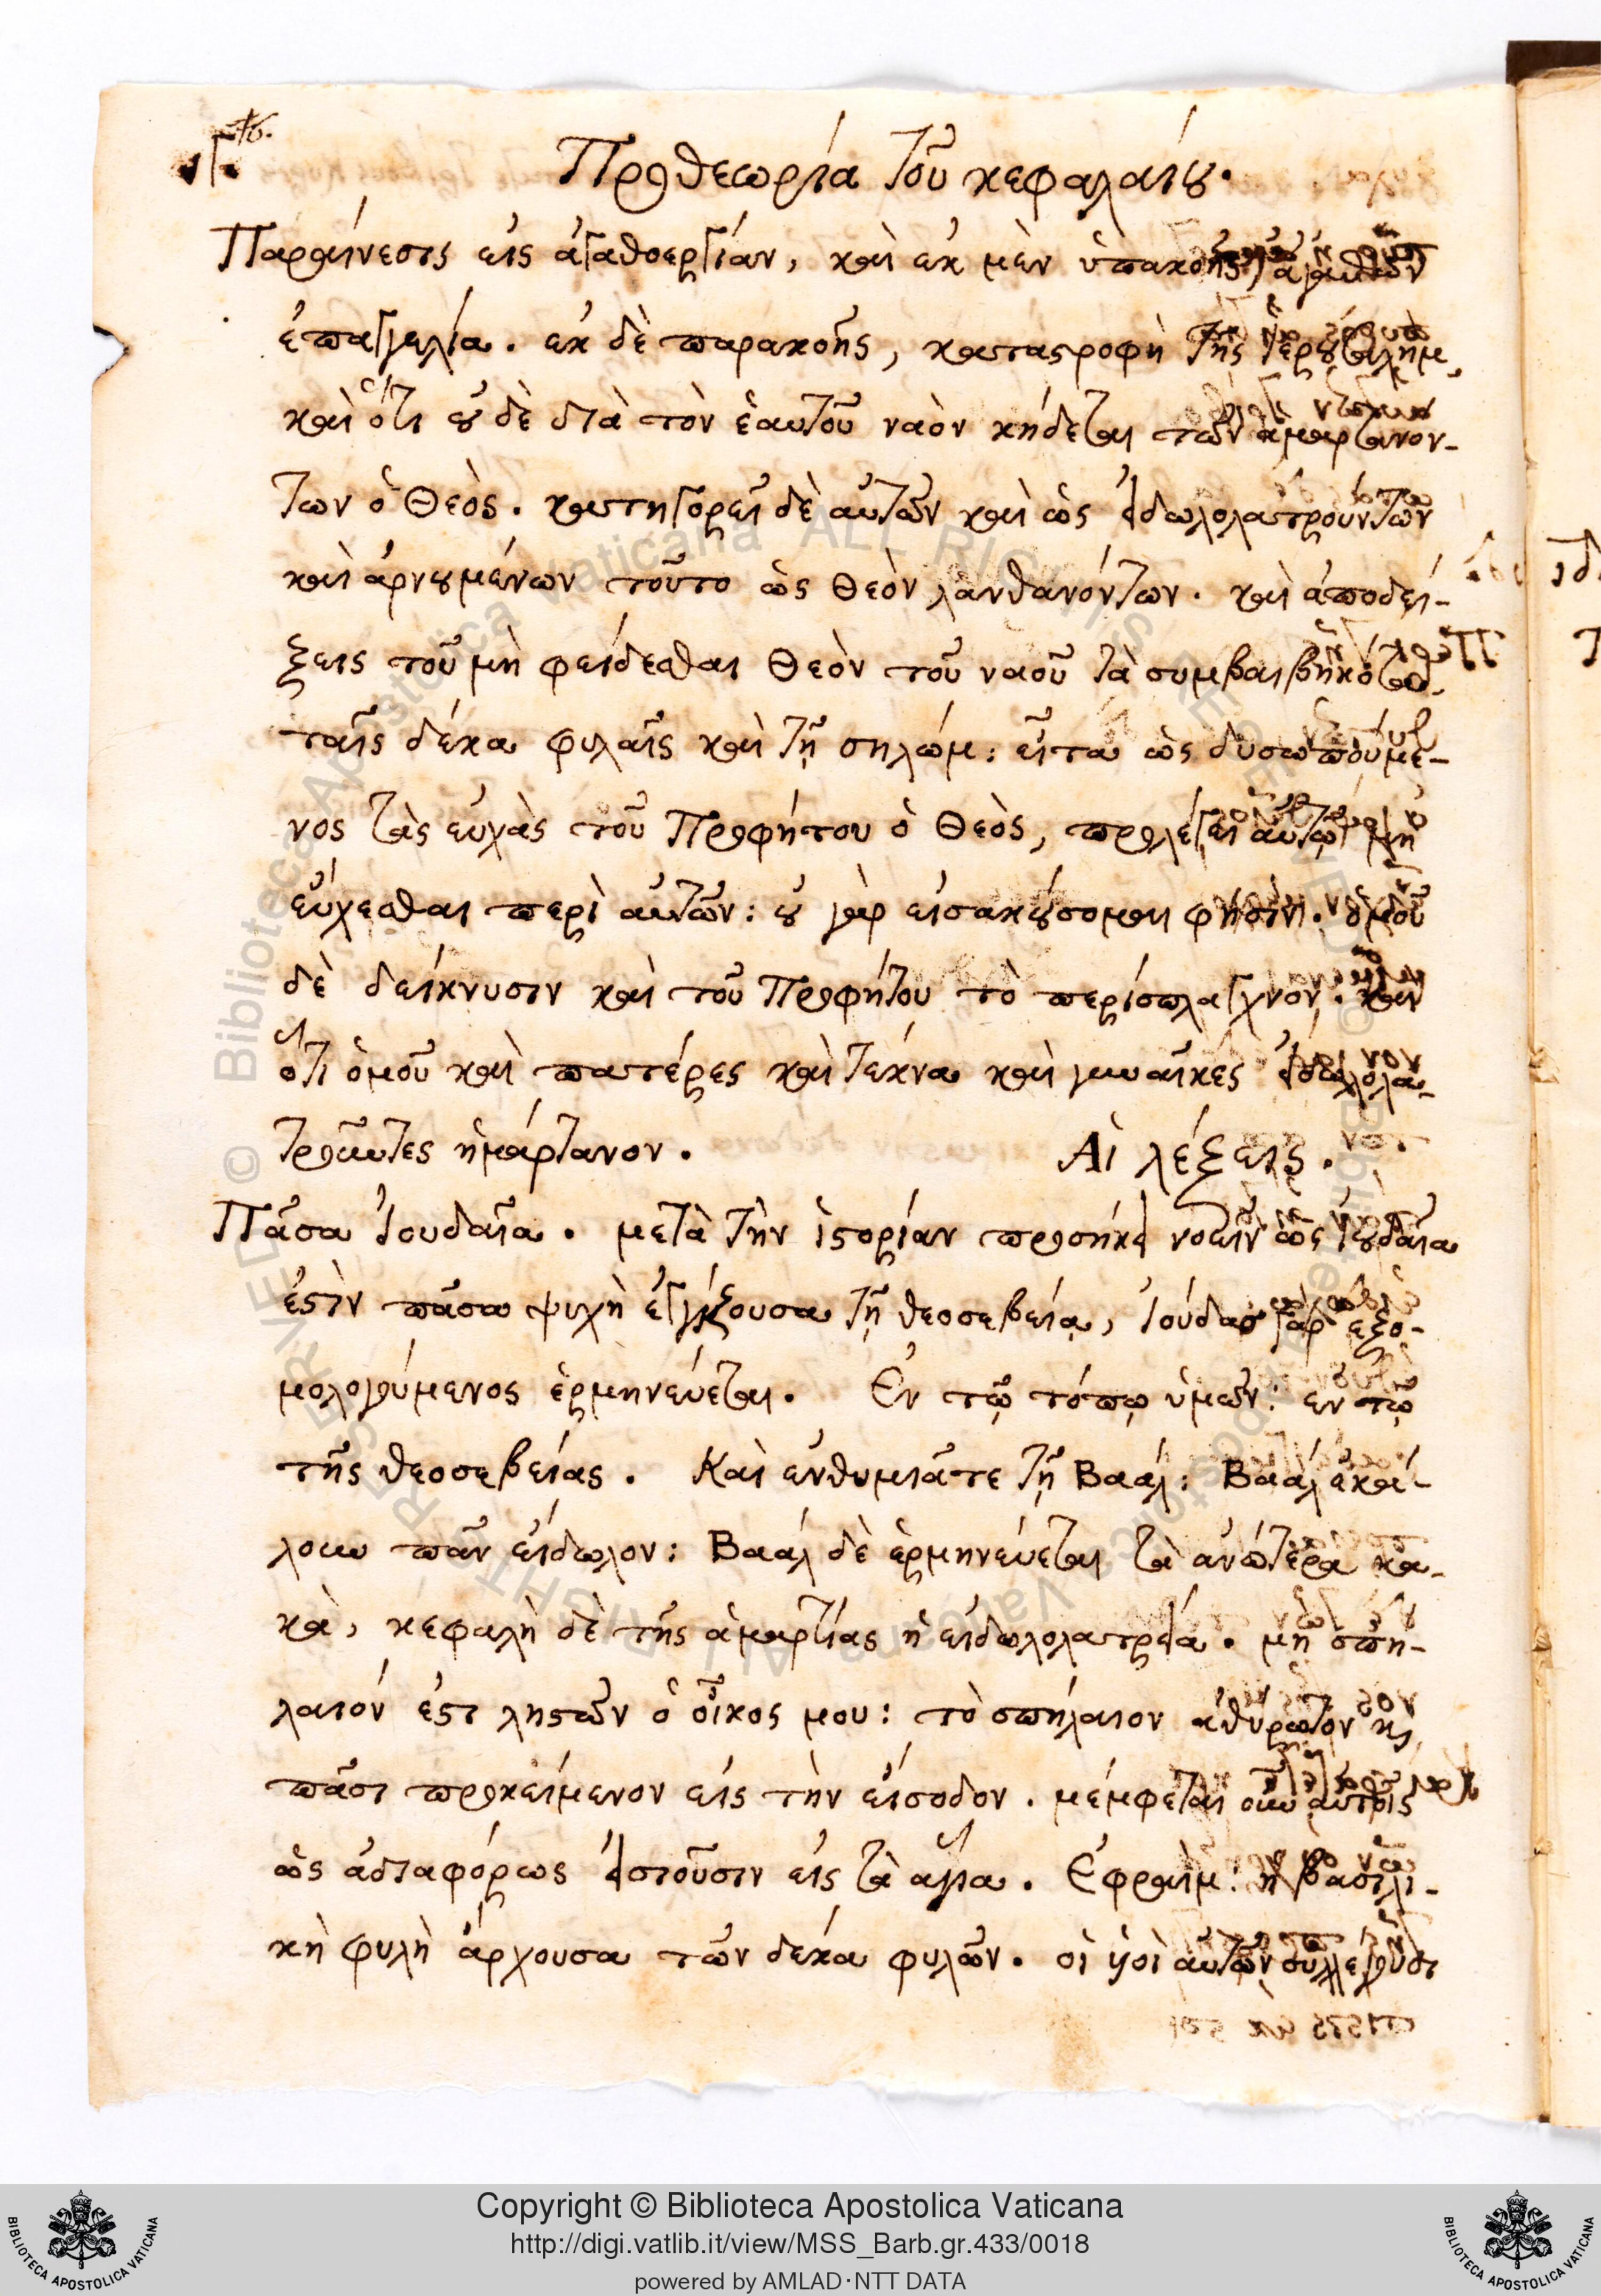 Προθεωρία τοῦ κεφαλαίου.
Παραίνεσις εἰς ἀγαθοεργίαν, καὶ ἐκ μὲν ὑπακοῆς, ἀγαθῶν
ἐπαγγελία. ἐκ δὲ παρακοῆς, καταστροφὴ τῆς Ἱερουσαλὴμ,
καὶ ὅτι οὐ δὲ διὰ τὸν ἑαυτοῦ ναὸν κήδεται τῶν ἁμαρτανόν-
των ὁ Θεὸς. κατηγορεῖ δὲ αὐτῶν καὶ ὡς εἰδωλολατρούντων
καὶ ἀρνουμένων τοῦτο ὡς Θεὸν λανθανόντων. καὶ ἀποδεί-
ξεις τοῦ μὴ φείδεσθαι Θεὸν τοῦ ναοῦ τὰ συμβαιβηκότα
ταῖς δέκα φυλαῖς καὶ τῇ σηλώμ: εἶτα ὡς δυσωπούμε-
νος τὰς εὐχὰς τοῦ Προφήτου ὁ Θεὸς, προλέγει αὐτῷ μὴ
εὔχεσθαι περὶ αὐτῶν: οὐ γὰρ εἰσακούσομαι φησὶν. ὁμοῦ
δὲ δείκνυσιν καὶ τοῦ Προφήτου τὸ περίσπλαγχνον. καὶ
ὅτι ὁμοῦ καὶ πατέρες καὶ τέκνα καὶ γυναῖκες εἰδωλολα-
τροῦντες ἡμάρτανον. Αἱ λέξεις.
Πᾶσα Ἰουδαῖα. μετὰ τὴν ἱστορίαν προσήκει νοεῖν ὡς Ἰουδαῖα
ἐστὶν πᾶσα ψυχὴ ἐγγίζουσα τῇ θεοσεβείᾳ, Ἰούδας γὰρ ἐξο-
μολογούμενος ἑρμηνεύεται. Ἐν τῷ τόπῳ ὑμῶν: ἐν τῷ
τῆς θεοσεβείας. Καὶ ἐνθυμιᾶτε τῇ Βαάλ: Βαάλ ἐκά-
λουν πᾶν εἴδωλον: Βαάλ δὲ ἑρμηνεύεται τὰ ἀνώτερα κα-
κὰ, κεφαλὴ δὲ τῆς ἁμαρτίας ἡ εἰδωλολατρεία. μὴ σπή-
λαιόν ἐστι λῃστῶν ὁ οἶκος μου: τὸ σπήλαιον ἀθύρωτον καὶ
πᾶσι προκείμενον εἰς τὴν εἴσοδον. μέμφεται οὖν αὐτοῖς
ὡς ἀδιαφόρως εἰσιοῦσιν εἰς τὰ ἅγια. Ἐφραίμ: ἡ βασιλι-
κὴ φυλὴ ἄρχουσα τῶν δέκα φυλῶν. οἱ υἱοὶ αὐτῶν συλλέγουσι
Copyright © Biblioteca Apostolica Vaticana
http://digi.vatlib.it/view/MSS_Barb.gr.433/0018
powered by AMLAD·NTT DATA
BIBLIOTECA APOSTOLICA VATICANA
BIBLIOTECA APOSTOLICA VATICANA